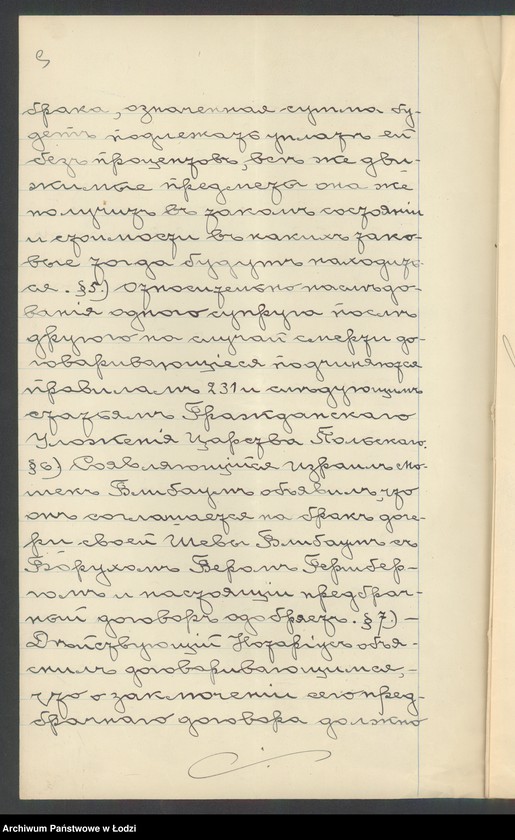 брака, означенная сумма бу-
детъ подлежать уплатѣ ей
безъ процентовъ, всѣ же дви-
жимые предметы она же
получитъ въ такомъ состоянiи
и стоимости въ какихъ тако-
вые тогда будутъ находить-
ся. §5.) Относительно наслѣдо-
ванiя одного супруга послѣ
другого на случай смерти до-
говаривающiеся подчиняются
правиламъ 231 и слѣдующимъ
статьямъ Гражданскаго
Уложенiя Царства Польскаго.
§6) Соявляющiйся Израиль
Блибаумъ объявилъ, что
онъ соглашается на бракъ доче-
ри своей Шевы Блибаумъ съ
Борухомъ Беромъ
и настоящiй предбрач-
ный договоръ одобряетъ. §7.) —
Дѣйствующiй Нотарiусъ объя-
снилъ договаривающимся, -
что о заключенiи сего пред-
брачнаго договора должно
Archiwum Państwowe w Łodzi